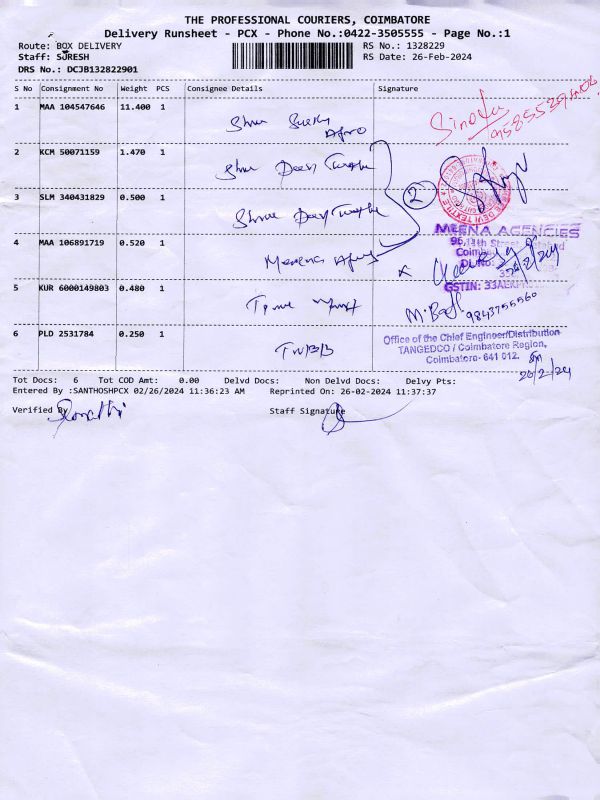 THE PROFESSIONAL COURIERS, COIMBATORE
Delivery Runsheet - PCX - Phone No.:0422-3505555 - Page No.:1
Route: BOX DELIVERY RS No.: 1328229
Staff: SURESH RS Date: 26-Feb-2024
DRS No.: DCJB132822901
S No Consignment No Weight PCS Consignee Details Signature
1 MAA 104547646 11.400 1
2 KCM 50071159 1.470 1 Shree Devi Textile
2
3 SLM 340431829 0.500 1 Shree Devi Textile
MEENA AGENCIES
96, 11th Street
4 MAA 106891719 0.520 1 Meena
5 KUR 6000149803 0.480 1
9843755560
6 PLD 2531784 0.250 1
Office of the Chief Engineer/Distribution
TANGEDCO / Coimbatore Region,
Coimbatore- 641 012.
26/2/24
Tot Docs: 6 Tot COD Amt: 0.00 Delvd Docs: Non Delvd Docs: Delvy Pts:
Entered By :SANTHOSHPCX 02/26/2024 11:36:23 AM Reprinted On: 26-02-2024 11:37:37
Verified By Staff Signature